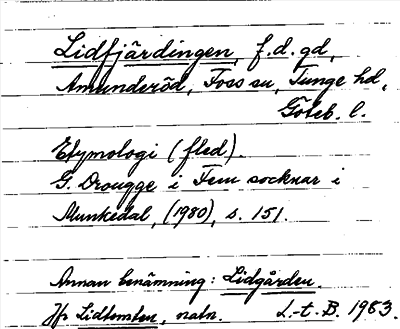 Lidfjärdingen, f.d. gd,
Amunderöd, Foss sn, Tunge hd,
Göteb. l.
Etymologi (fled).
G. Drougge i Fem socknar i
Munkedal, (1980), s. 151.
Annan benämning: Lidgården.
Jfr Lidtomten, natn. L.-t. B. 1983.